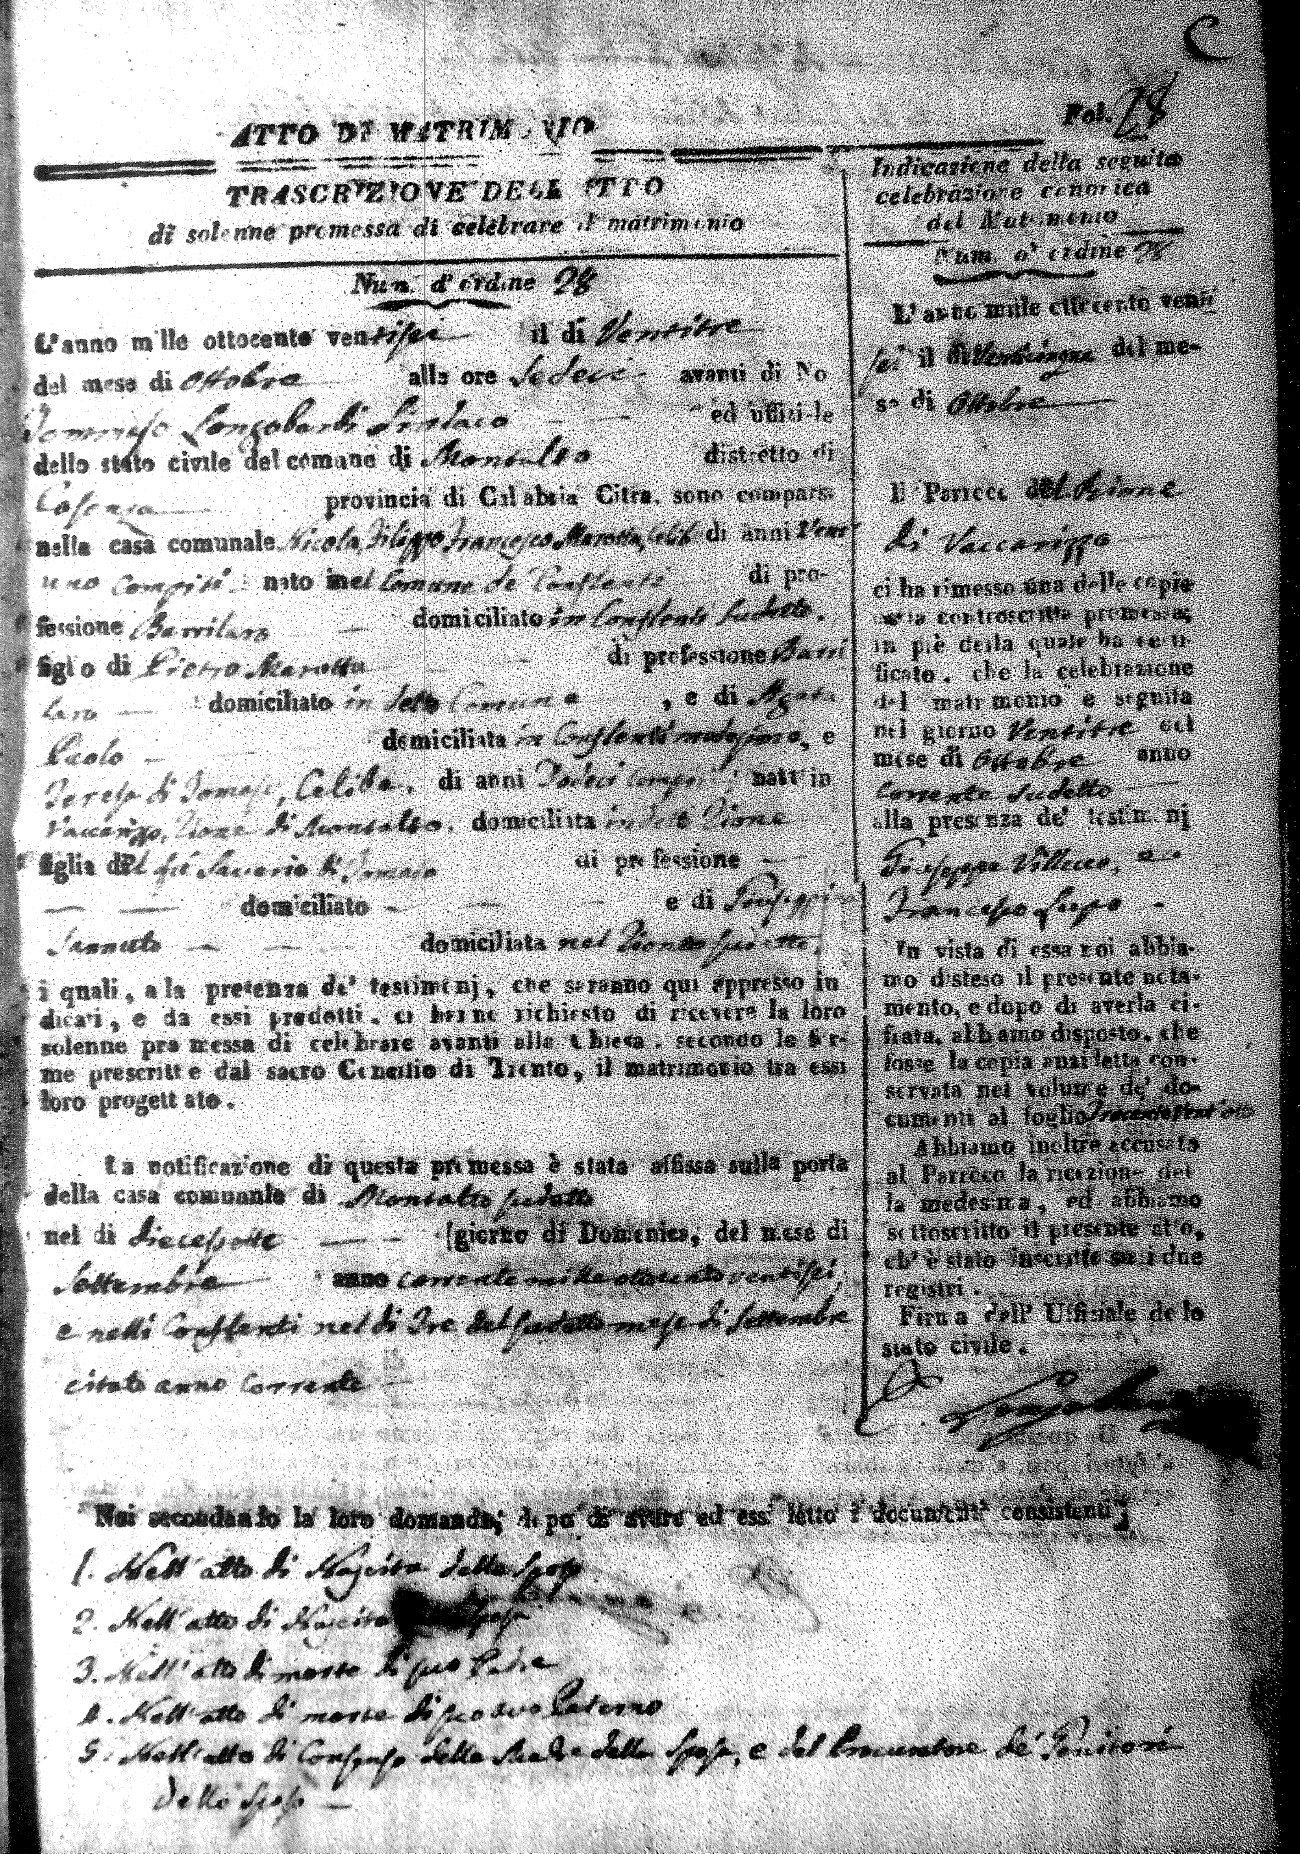 C
Fol. 28
ATTO DI MATRIMONIO
TRASCRIZIONE DELL'ATTO
di solenne promessa di celebrare il matrimonio
Num. d'ordine 28
L'anno mille ottocento ventisei il di Ventitre
del mese di Ottobre alle ore Sedeci avanti di Noi
Tommaso Longobardi Sindaco ed uffiziale
dello stato civile del comune di Montalto distretto di
Cosenza provincia di Calabria Citra. sono comparsi
nella casa comunale Nicola, Filippo Francesco Marotta, Celib. di anni Vent
uno Compiti nato nel Comune de Conflenti di pro-
fessione Barrilaro domiciliato in Conflenti sudeto.
figlio di Pietro Marotta di professione Barri
laro domiciliato in deto Comune , e di Agata
Paola domiciliata in Conflenti medesimo, e
Teresa di Tomaso, Celiba, di anni Dodeci compiti nata in
Vaccarizzo, Rione di Montalto. domiciliata in deto Rione
figlia del fu Saverio di Tomaso di professione
domiciliato e di Giuseppina
Iannuto domiciliata nel Rione sudetto.
i quali, alla presenza de' testimonj, che saranno qui appresso in
dicati, e da essi prodotti. ci hanno richiesto di ricevere la loro
solenne promessa di celebrare avanti alla Chiesa. secondo le for-
me prescritte dal sacro Concilio di Trento, il matrimonio tra essi
loro progettato.
La notificazione di questa promessa è stata affissa sulla porta
della casa comunale di Montalto sudetto
nel di diecesette giorno di Domenica, del mese di
Settembre anno corrente mille ottocento ventisei,
e nelli Conflenti nel di Tre del sudetto mese di Settembre
citato anno corrente
Indicazione della seguita
celebrazione canonica
del Matrimonio
Num. d'ordine 28
L'anno mille ottocento venti
sei il di Venticinque del me-
se di Ottobre
Il Parroco del Rione
di Vaccarizzo
ci ha rimesso una delle copie
della controscritta promessa;
in piè della quale ha certi-
ficato, che la celebrazione
del matrimonio è seguita
nel giorno Ventitre del
mese di Ottobre anno
corrente sudetto
alla presenza de' testimonj
Giuseppe Villecco, e
Francesco Lupo
In vista di essa noi abbia-
mo disteso il presente nota-
mento, e dopo di averla ci-
frata, abbiamo disposto, che
fosse la copia anzidetta con-
servata nel volume de' do-
cumenti al foglio
Abbiamo inoltre accusata
al Parroco la ricezione del
la medesima, ed abbiamo
sottoscritto il presente atto,
ch' è stato inscritto sui due
registri.
Firma dell' Uffiziale dello
stato civile.
Longobardi
Noi secondando la loro domanda; dopo di avere ad essi letto i documenti consistenti;
1. Nell'atto di Nascita dello sposo
2. Nell'atto di Nascita della sposa
3. Nell'atto di morte di suo Padre
4. Nell'atto di morte di suo avo Paterno
5. Nell'atto di Consenso della Madre della Sposa, e del Procuratore de' Genitori
dello sposo